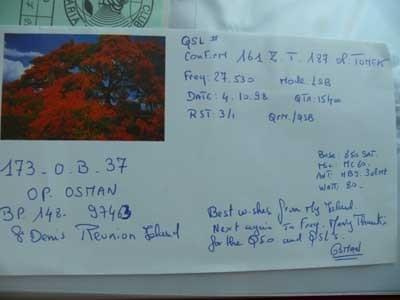 CLUB
QSL #
Confirm 161 Z.T. 187 OP. TOMEK
Freq: 27.530 Mode: LSB
DATE: 4.10.98 QTR: 15400
RST: 3/1 QRM/QSB
173-O.B-37
OP. OSMAN
BP. 148- 9746
St Denis Reunion Island
Base: 650 SAT.
Mic: MC60.
Ant: HB9. 3elMt
Watt: 80-
Best wishes from My Island.
Next again in Freq. Many Thanks
for the QSO and QSL's.
OSMAN